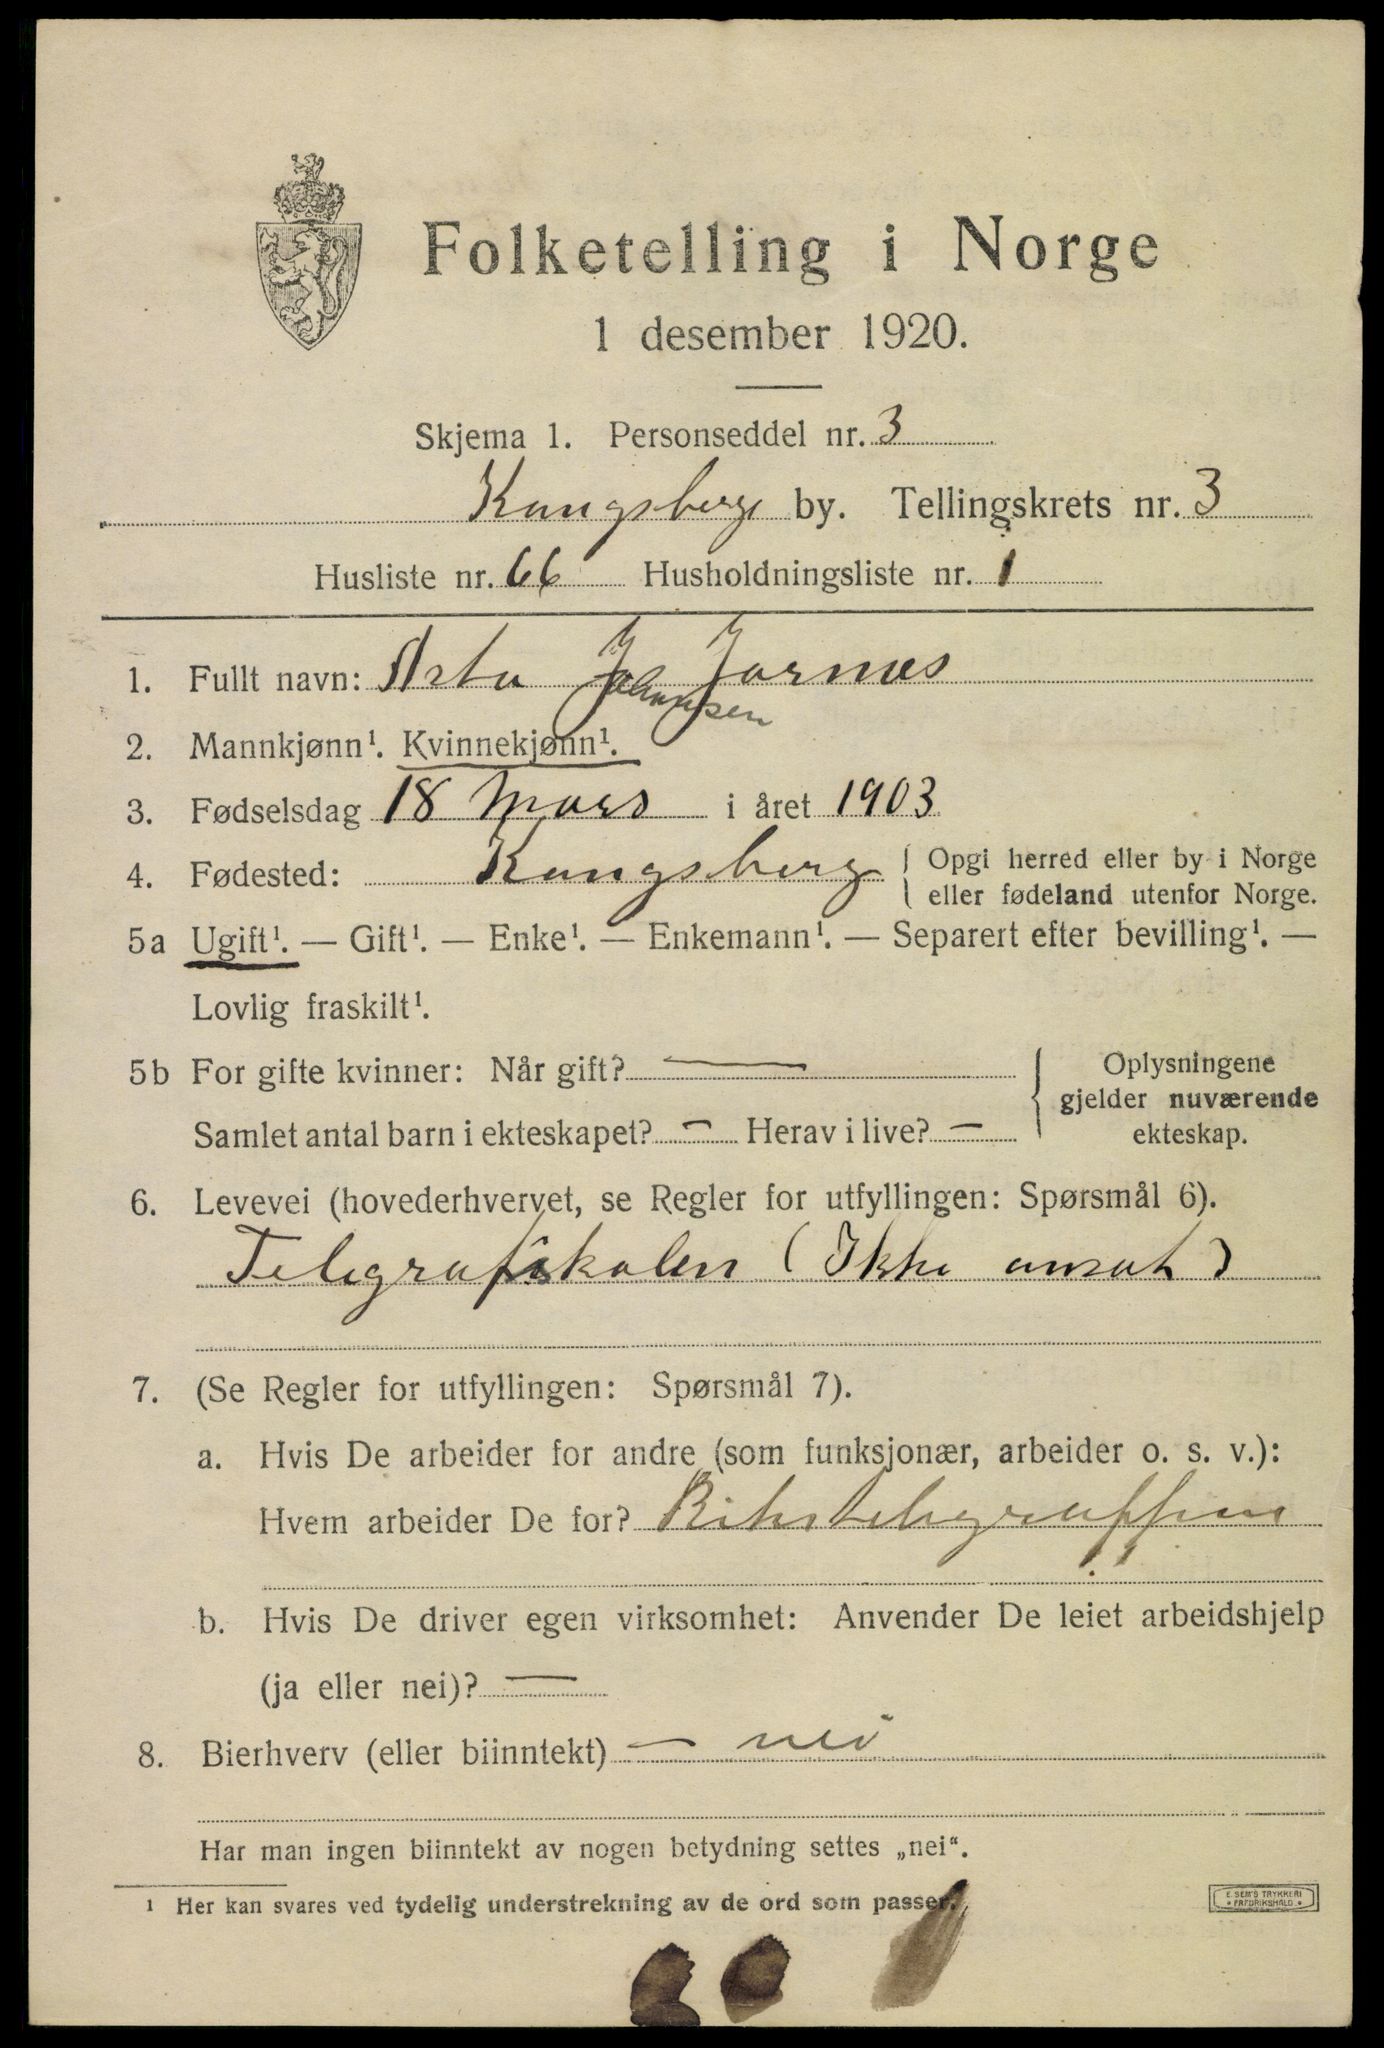 Folketelling i Norge
1 desember 1920.
Skjema 1. Personseddel nr. 3
Kongsberg by. Tellingskrets nr. 3
Husliste nr. 66 Husholdningsliste nr. 1
1. Fullt navn: Asta J. Jornæs
Johansen
2. Mannkjønn¹. Kvinnekjønn¹.
3. Fødselsdag 18 Mars i året 1903
4. Fødested: Kongsberg { Opgi herred eller by i Norge
eller fødeland utenfor Norge.
5a Ugift¹. — Gift¹. — Enke¹. — Enkemann¹. — Separert efter bevilling¹. —
Lovlig fraskilt¹.
5b For gifte kvinner: Når gift? — { Oplysningene
gjelder nuværende
Samlet antal barn i ekteskapet? — Herav i live? — ekteskap.
6. Levevei (hovederhvervet, se Regler for utfyllingen: Spørsmål 6).
Telegrafskolen (Ikke ansat)
7. (Se Regler for utfyllingen: Spørsmål 7).
a. Hvis De arbeider for andre (som funksjonær, arbeider o. s. v.):
Hvem arbeider De for? Rikstelegraffen
b. Hvis De driver egen virksomhet: Anvender De leiet arbeidshjelp
(ja eller nei)? —
8. Bierhverv (eller biinntekt) — nei
Har man ingen biinntekt av nogen betydning settes „nei“.
¹ Her kan svares ved tydelig understrekning av de ord som passer.
E. SEM'S TRYKKERI
• FREDRIKSHALD •